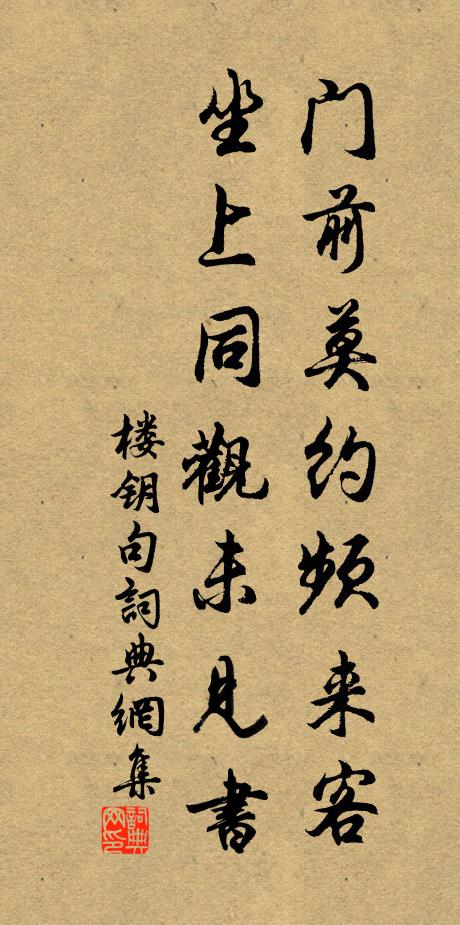 门前莫约频来客
坐上同觀未見書
楼钥句詞典網集
詞典网印